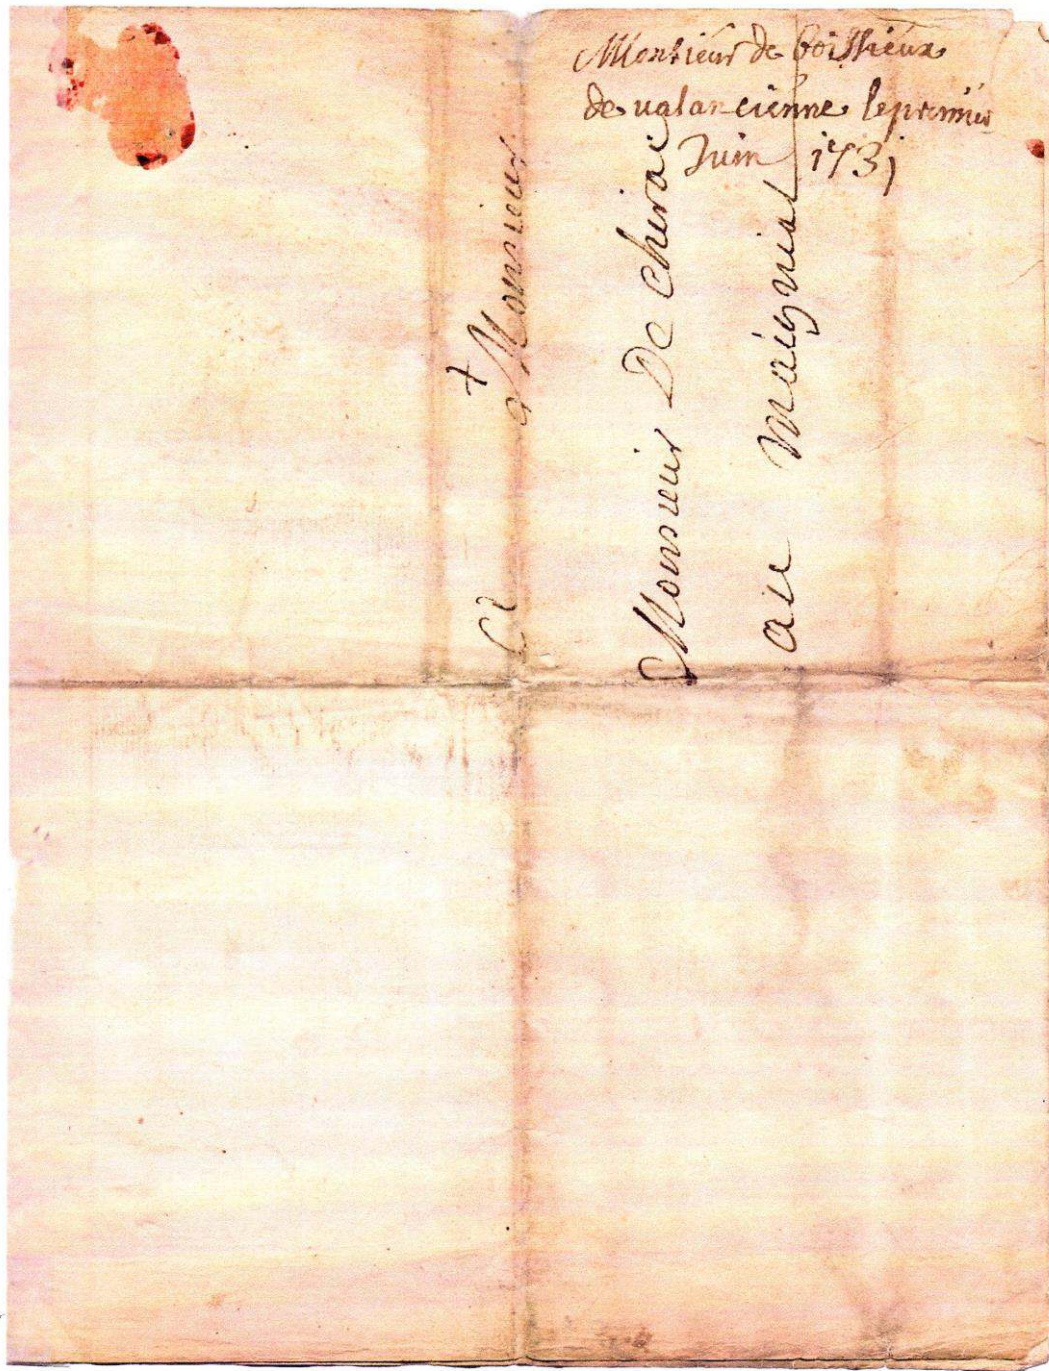 Monsieur de boissieux
de valancienne le premier
Juin 1731
A Monsieur
Monsieur De chirai
au maignial